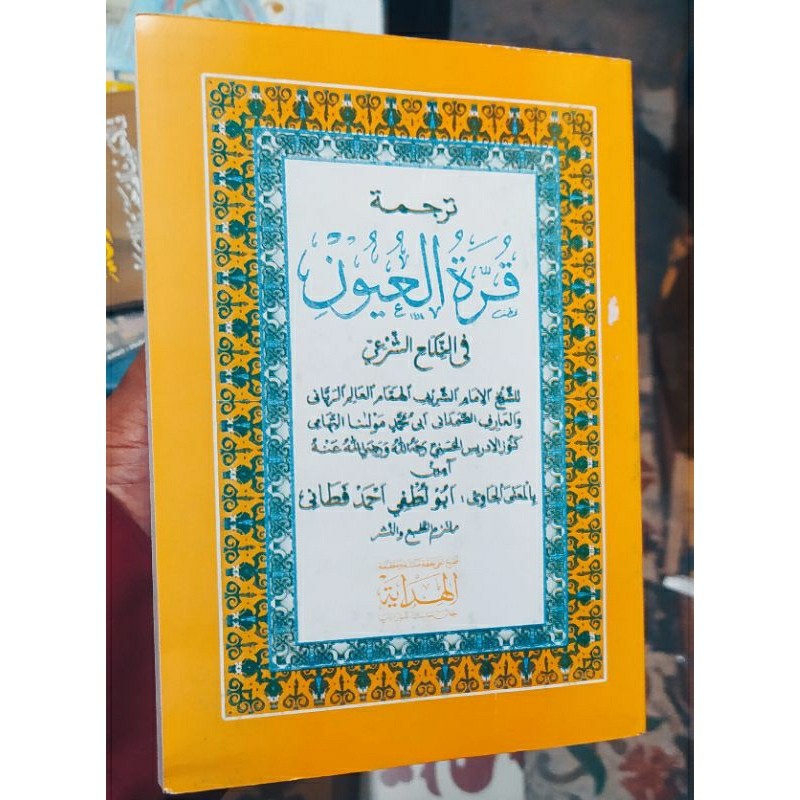 ترجمة
قُرَّةُ الْعُيُوْنِ
فى النكاح الشّرعيّ
للشيخ الإمام الشريف الهمام العالم الربانى
والعارف الصمدانى ابى محمد مولنا التهامى
كنون الادريس الحسنى رحمه الله ورضي الله عنه
آمين
بالمعنى الجاوى : ابو لطفي احمد فطانى
ملتزم الطبع والنشر
الهداية